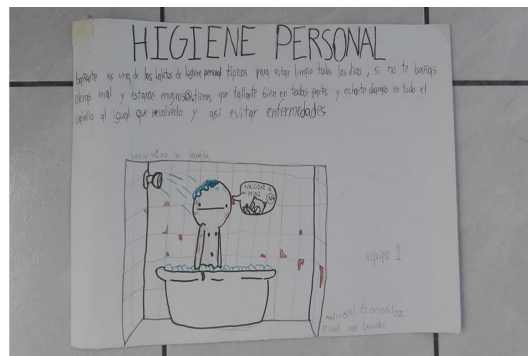 HIGIENE PERSONAL
bañarte es uno de los habitos de higiene personal tipicos para estar limpio todos los dias, si no te bañas
olieras mal y estaras mugroso, tienes que tallarte bien en todas partes y echarte shampo en todo el
cabello al igual que revolverlo y asi evitar enfermedades
equipo 1
Gonzalez